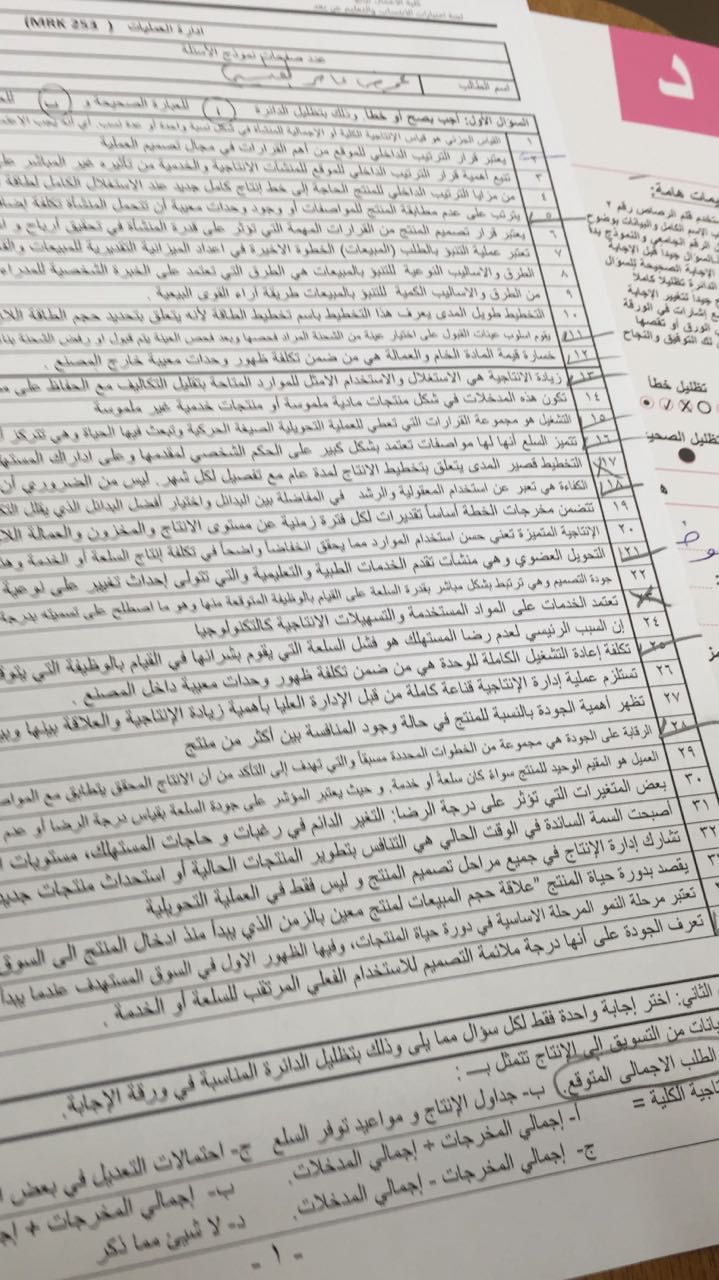 لجنة اختبارات الانتساب والتعليم عن بعد
ادارة العمليات ( MRK 253 )
عدد صفحات نموذج الأسئلة
اسم الطالب
السؤال الأول: أجب بصح أو خطأ وذلك بتظليل الدائرة أ للعبارة الصحيحة و ب
١ القياس الجزئي هو قياس الإنتاجية الكلية أو الاجمالية للمنشأة في شكل نسبة واحدة أو عدة نسب، أي أنه يجب
يعتبر قرار الترتيب الداخلي للموقع من أهم القرارات في مجال تصميم العملية
٣ تنبع أهمية قرار الترتيب الداخلي للموقع للمنشآت الإنتاجية والخدمية من تأثيره غير المباشر
٤ من مزايا الترتيب الداخلي للمنتج الحاجة إلى خط إنتاج كامل جديد عند الاستغلال الكامل لطاقة
٥ يترتب على عدم مطابقة المنتج للمواصفات أو وجود وحدات معيبة أن تتحمل المنشأة تكلفة
٦ يعتبر قرار تصميم المنتج من القرارات المهمة التي تؤثر على قدرة المنشأة في تحقيق أرباح و
٧ تعتبر عملية التنبؤ بالطلب (المبيعات) الخطوة الاخيرة في اعداد الميزانية التقديرية للمبيعات
٨ الطرق و الاساليب النوعية للتنبؤ بالمبيعات هي الطرق التي تعتمد على الخبرة الشخصية
٩ من الطرق والاساليب الكمية للتنبؤ بالمبيعات طريقة آراء القوى البيعية .
١٠ التخطيط طويل المدى يعرف هذا التخطيط باسم تخطيط الطاقة لأنه يتعلق بتحديد حجم الطاقة
١١ يقوم اسلوب عينات القبول على اختيار عينة من الشحنة المراد فحصها وبعد فحص العينة يتم قبول او رفض الشحنة
١٢ خسارة قيمة المادة الخام والعمالة هي من ضمن تكلفة ظهور وحدات معيبة خارج المصنع .
١٣ زيادة الانتاجية هي الاستغلال والاستخدام الامثل للموارد المتاحة بتقليل التكاليف مع الحفاظ على
١٤ تكون هذه المدخلات في شكل منتجات مادية ملموسة أو منتجات خدمية غير ملموسة
١٥ التشغيل هو مجموعة القرارات التي تعطي للعملية التحويلية الصيغة الحركية وتبحث فيها الحياة وهي تتركز
١٦ تتميز السلع أنها لها مواصفات تعتمد بشكل كبير على الحكم الشخصي لمقدمها و على ادراك
١٧ التخطيط قصير المدى يتعلق بتخطيط الانتاج لمدة عام مع تفصيل لكل شهر. ليس من الضروري أن
١٨ الكفاءة هي تعبر عن استخدام المعقولية والرشد في المفاضلة بين البدائل واختيار أفضل البدائل الذي يقلل
١٩ تتضمن مخرجات الخطة أساساً تقديرات لكل فترة زمنية عن مستوى الانتاج و المخزون و العمالة
٢٠ الإنتاجية المتميزة تعني حسن استخدام الموارد مما يحقق انخفاضاً واضحاً في تكلفة إنتاج السلعة أو الخدمة
٢١ التحويل العضوي وهي منشآت تقدم الخدمات الطبية والتعليمية والتي تتولى إحداث تغيير على نوعية
٢٢ جودة التصميم وهي ترتبط بشكل مباشر بقدرة السلعة على القيام بالوظيفة المتوقعة منها وهو ما اصطلح على تسميته بدرجة
تعتمد الخدمات على المواد المستخدمة والتسهيلات الانتاجية كالتكنولوجيا
٢٤ إن السبب الرئيسي لعدم رضا المستهلك هو فشل السلعة التي يقوم بشرائها في القيام بالوظيفة التي
٢٥ تكلفة إعادة التشغيل الكاملة للوحدة هي من ضمن تكلفة ظهور وحدات معيبة داخل المصنع .
٢٦ تستلزم عملية إدارة الإنتاجية قناعة كاملة من قبل الإدارة العليا بأهمية زيادة الإنتاجية و العلاقة بينها
٢٧ تظهر أهمية الجودة بالنسبة للمنتج في حالة وجود المنافسة بين أكثر من منتج
٢٨ الرقابة على الجودة هي مجموعة من الخطوات المحددة مسبقاً والتي تهدف إلى التأكد من أن الانتاج المحقق يتطابق مع
٢٩ العميل هو المقيم الوحيد للمنتج سواءً كان سلعةً أو خدمة. و حيث يعتبر المؤشر على جودة السلعة بقياس درجة الرضا أو عدم
٣٠ بعض المتغيرات التي تؤثر على درجة الرضا: التغير الدائم في رغبات و حاجات المستهلك، مستويات
٣١ أصبحت السمة السائدة في الوقت الحالي هي التنافس بتطوير المنتجات الحالية أو استحداث منتجات
٣٢ تشارك إدارة الإنتاج في جميع مراحل تصميم المنتج و ليس فقط في العملية التحويلية
يقصد بدورة حياة المنتج "علاقة حجم المبيعات لمنتج معين بالزمن الذي يبدأ منذ ادخال المنتج الى السوق
تعتبر مرحلة النمو المرحلة الاساسية في دورة حياة المنتجات، وفيها الظهور الاول في السوق المستهدف عندما يبدأ
تعرف الجودة على أنها درجة ملائمة التصميم للاستخدام الفعلي المرتقب للسلعة أو الخدمة .
الثاني: اختر إجابة واحدة فقط لكل سوال مما يلي وذلك بتظليل الدائرة المناسبة في ورقة الإجابة.
من التسويق الى الإنتاج تتمثل بـــ :
الطلب الاجمالى المتوقع. ب- جداول الإنتاج و مواعيد توفر السلع ج- احتمالات التعديل في بعض
الكلية =
أ- إجمالي المخرجات + إجمالي المدخلات. ب- إجمالي المخرجات +
ج- إجمالي المخرجات - إجمالي المدخلات. د- لا شيئ مما ذكر
- ١ -
د
هامة:
تظليل خطأ